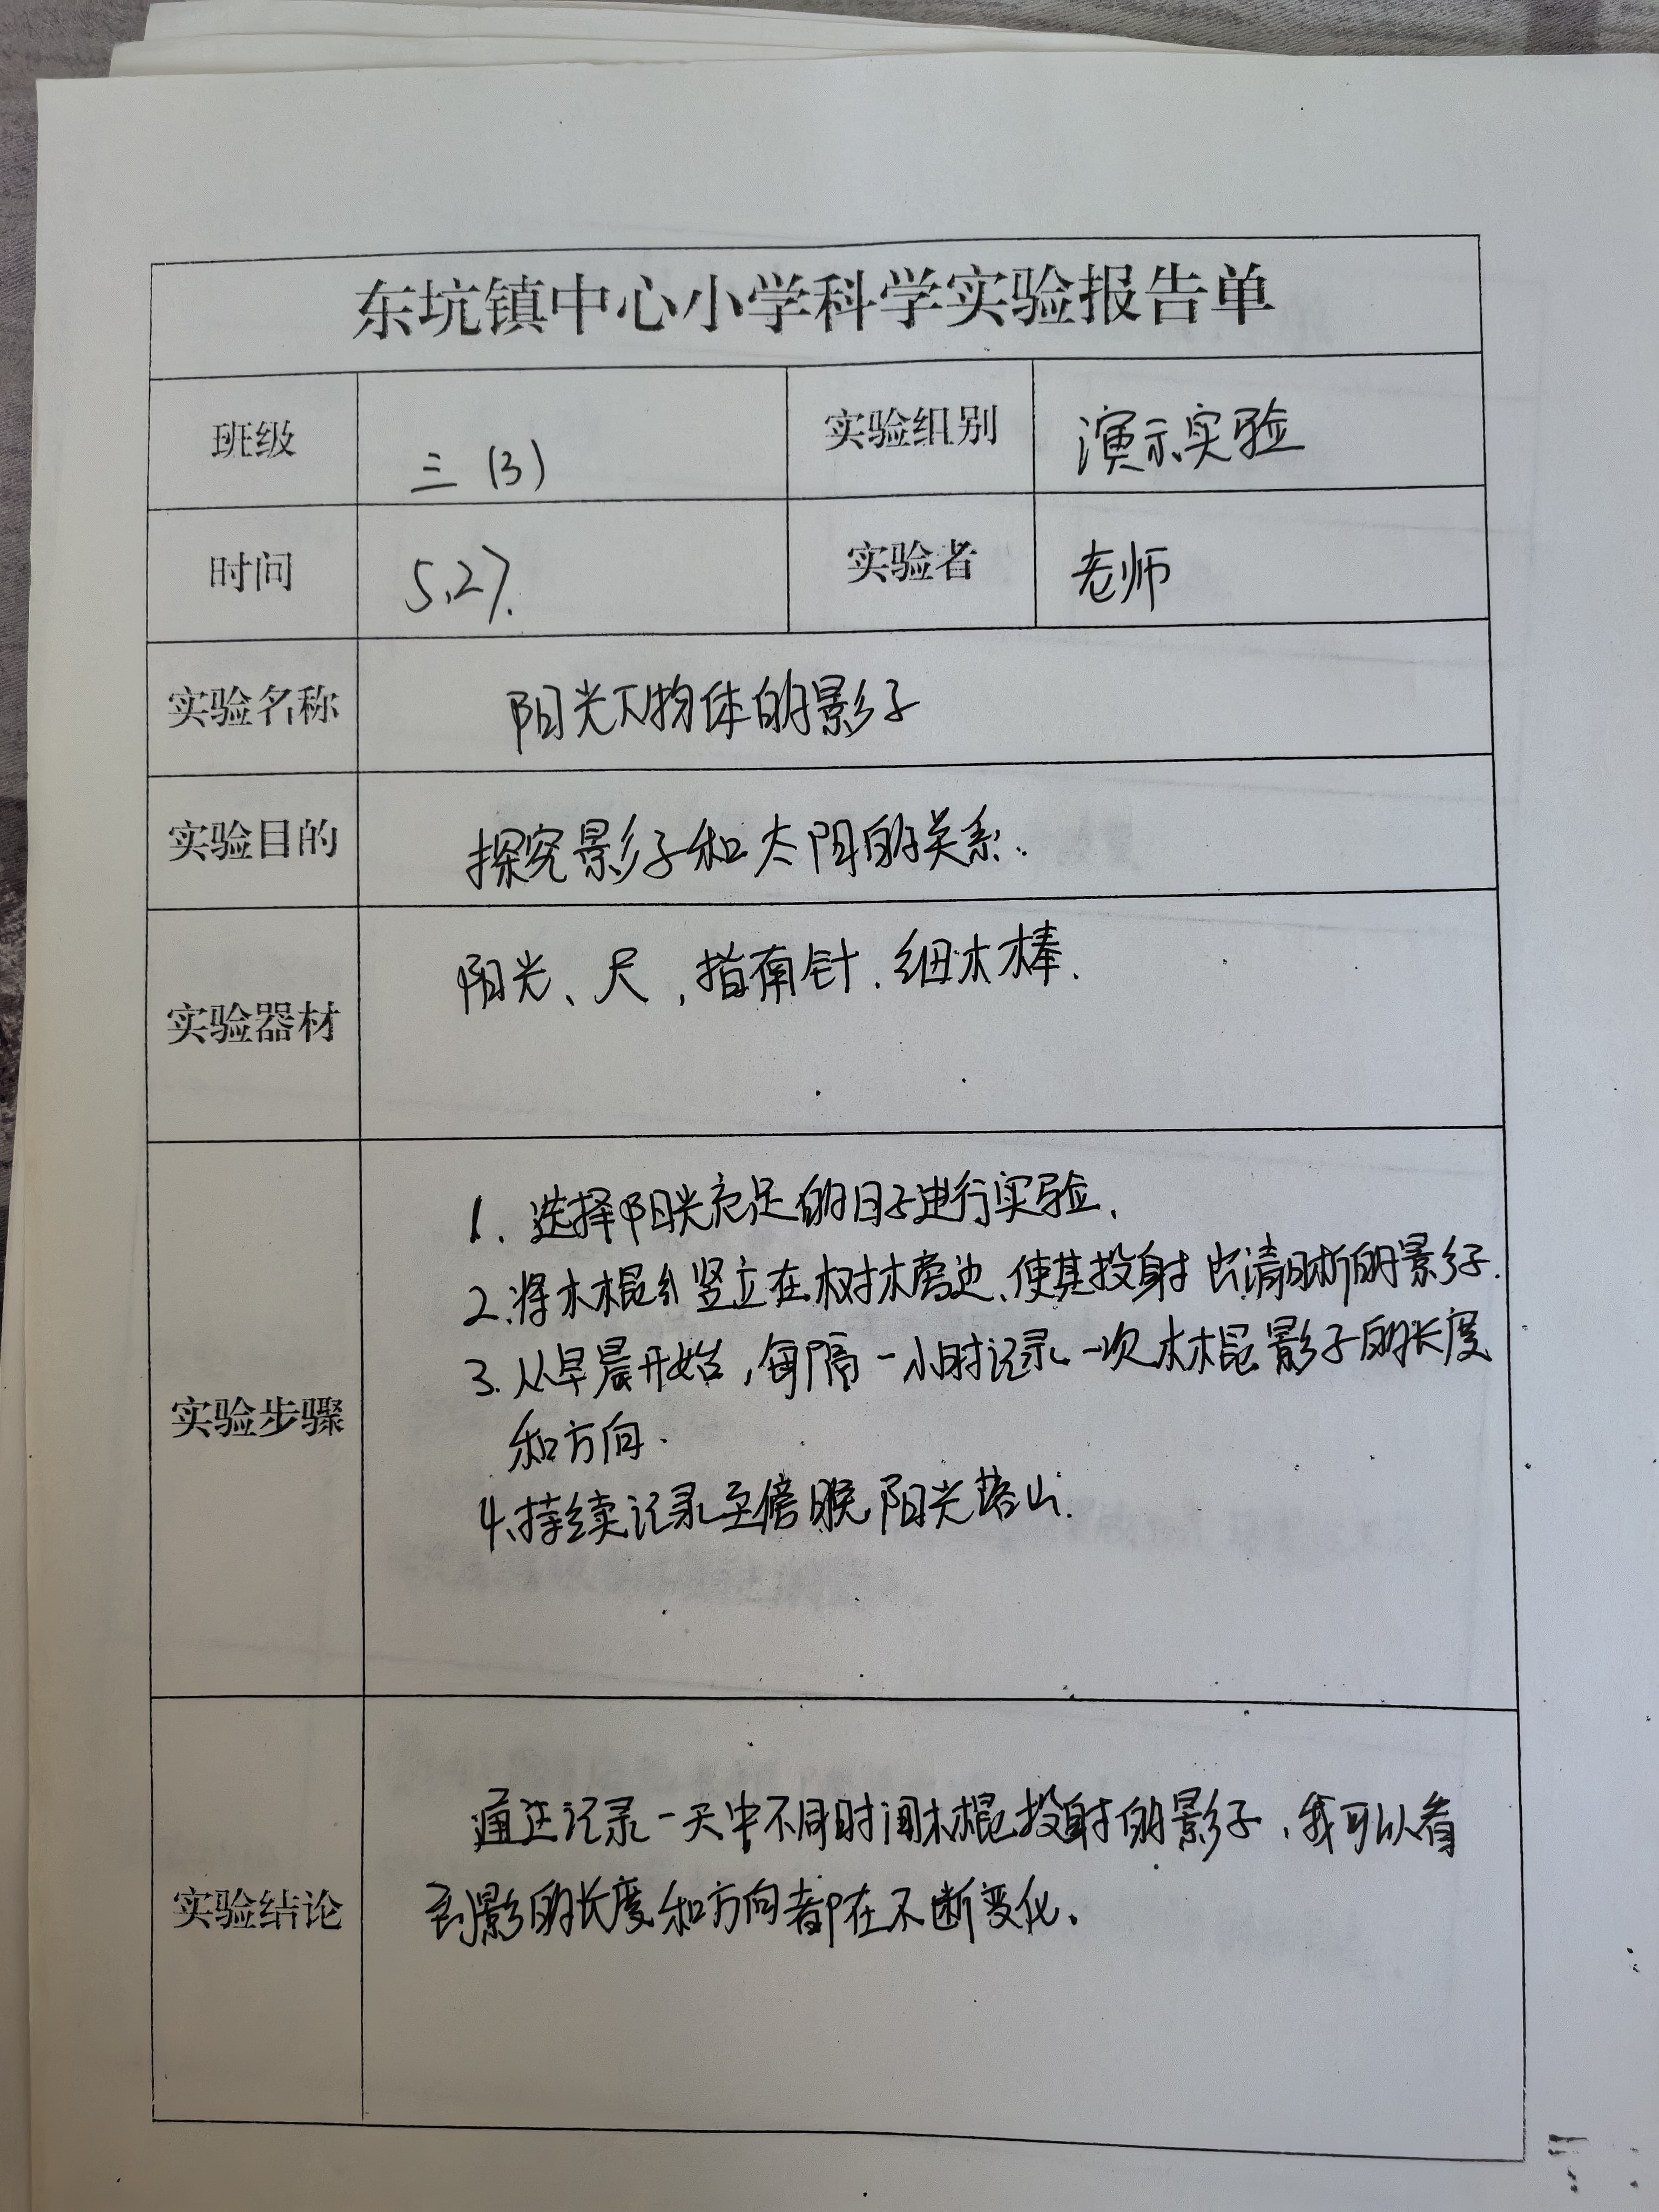 东坑镇中心小学科学实验报告单
班级 三(3) 实验组别 演示实验
时间 5.27. 实验者 老师
实验名称 阳光下物体的影子
实验目的 探究影子和太阳的关系.
实验器材 阳光、尺,指南针.细木棒.
实验步骤
1.选择阳光充足的日子进行实验.
2.将木棍竖立在树木旁边、使其投射出清晰的影子.
3.从早晨开始,每隔一小时记录一次木棍影子的长度
和方向.
4.持续记录至傍晚阳光落山.
实验结论
通过记录一天中不同时间木棍投射的影子.我可以看
到影的长度和方向都在不断变化.